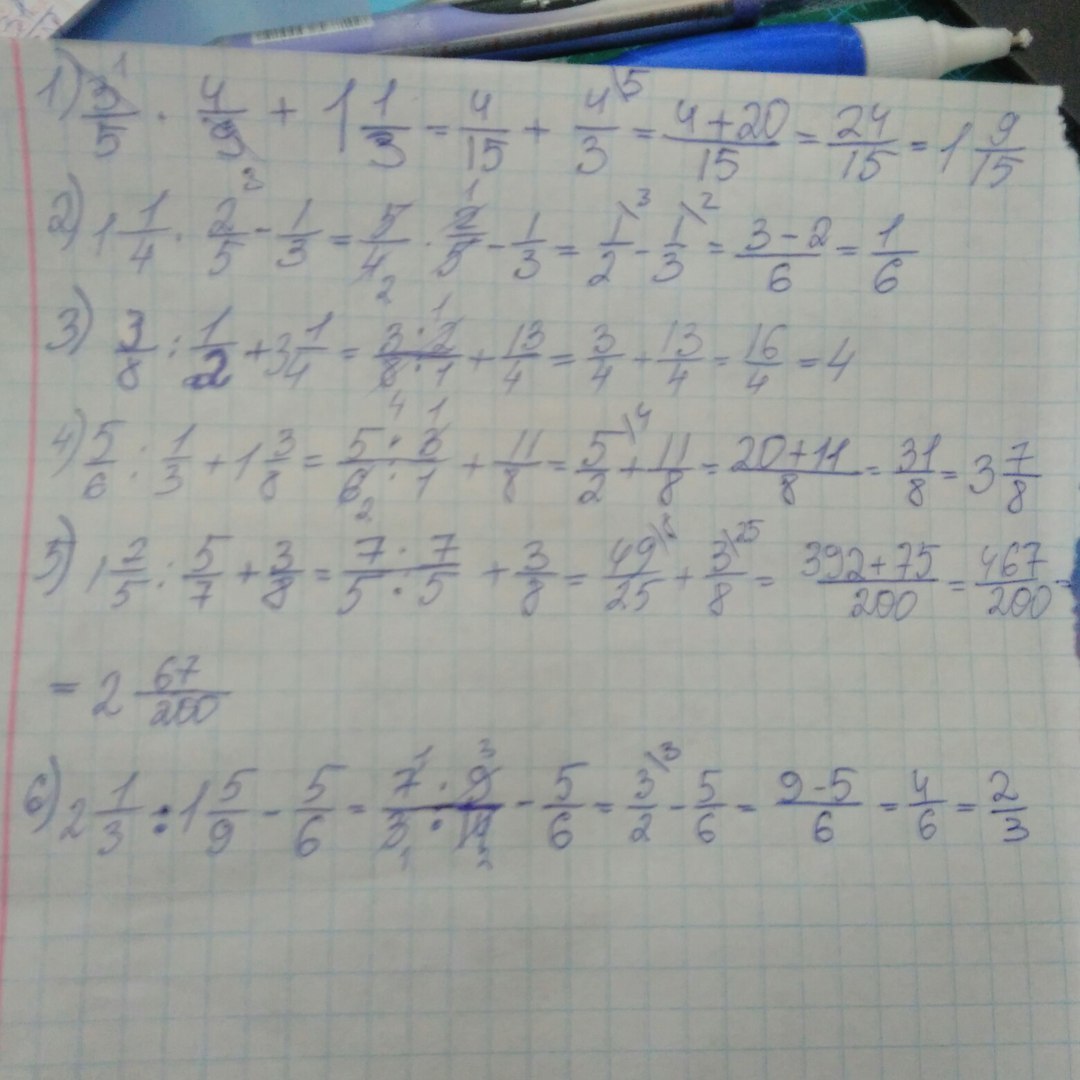 1) 3/5 · 4/9 + 1 1/3 = 4/15 + 4/3 \5 = 4+20/15 = 24/15 = 1 9/15
2) 1 1/4 · 2/5 - 1/3 = 5/4 · 2/5 - 1/3 = 1/2 \3 - 1/3 \2 = 3-2/6 = 1/6
3) 3/8 : 1/2 + 3 1/4 = 3·2/8·1 + 13/4 = 3/4 + 13/4 = 16/4 = 4
4) 5/6 : 1/3 + 1 3/8 = 5·3/6·1 + 11/8 = 5/2 \4 + 11/8 = 20+11/8 = 31/8 = 3 7/8
5) 1 2/5 : 5/7 + 3/8 = 7·7/5·5 + 3/8 = 49/25 \8 + 3/8 \25 = 392+75/200 = 467/200 =
= 2 67/200
6) 2 1/3 : 1 5/9 - 5/6 = 7·9/3·14 - 5/6 = 3/2 \3 - 5/6 = 9-5/6 = 4/6 = 2/3